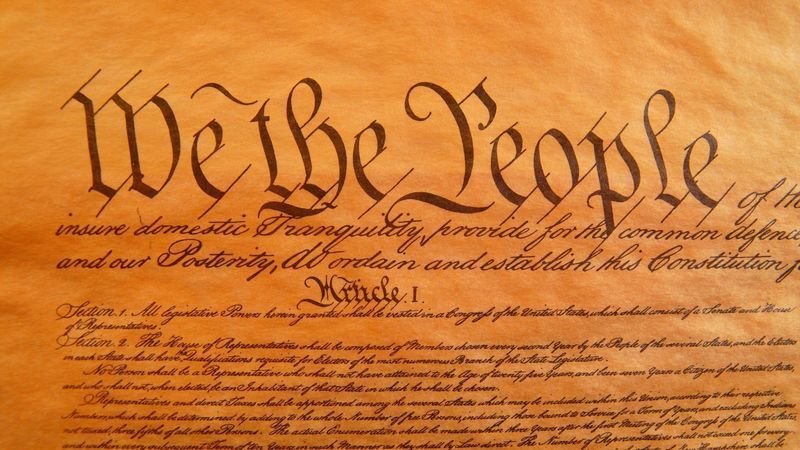 We the People of the
insure domestic Tranquility, provide for the common defence
and our Posterity, do ordain and establish this Constitution
Article. I.
Section. 1. All legislative Powers herein granted shall be vested in a Congress of the United States, which shall consist of a Senate and House
of Representatives
Section. 2. The House of Representatives shall be composed of Members chosen every second Year by the People of the several States, and the Electors
in each State shall have Qualifications requisite for Electors of the most numerous Branch of the State Legislature.
No Person shall be a Representative who shall not have attained to the Age of twenty five Years, and been seven Years a Citizen of the United States,
and who shall not, when elected, be an Inhabitant of that State in which he shall be chosen.
Representatives and direct Taxes shall be apportioned among the several States which may be included within this Union, according to their respective
Numbers, which shall be determined by adding to the whole Number of free Persons, including those bound to Service for a Term of Years, and excluding Indians
not taxed, three fifths of all other Persons. The actual Enumeration shall be made within three Years after the first Meeting of the Congress of the United States,
and within every subsequent Term of ten Years, in such Manner as they shall by Law direct. The Number of Representatives shall not exceed one for every